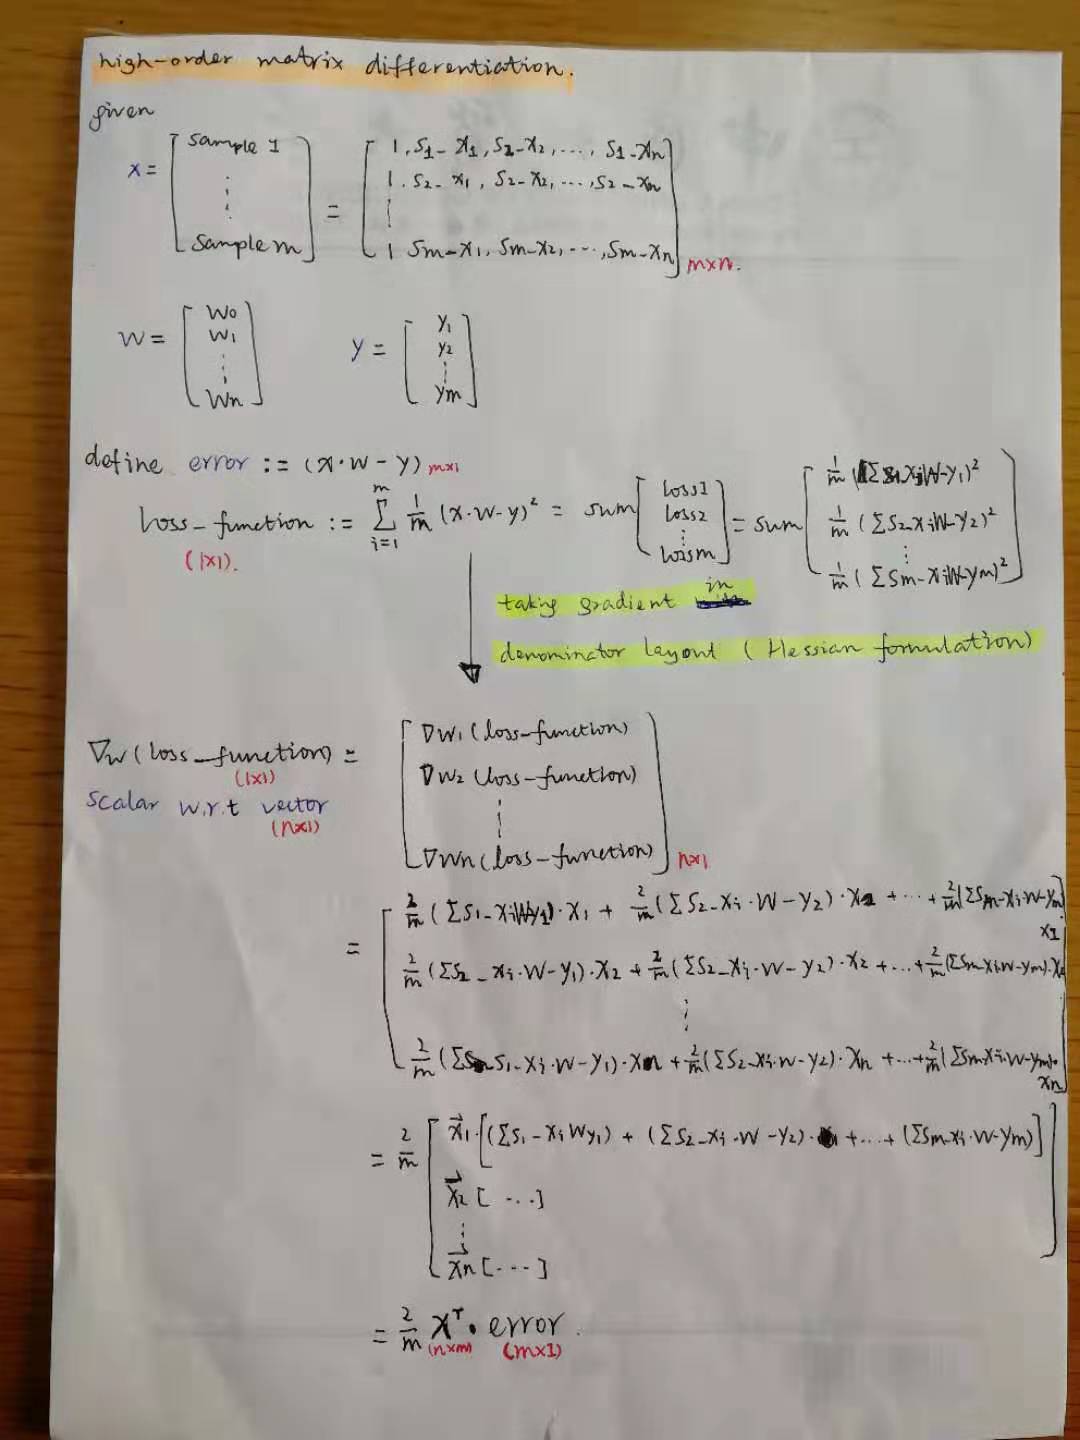 high-order matrix differentiation.
given
x = [ sample 1 ⋮ sample m ] = [ 1, S1_x1, S2_x2, ..., S1_xn
1, S2_x1, S2_x2, ..., S2_xn
⋮
1 Sm_x1, Sm_x2, ..., Sm_xn ] m×n.
W = [ W0 W1 ⋮ Wn ] y = [ y1 y2 ⋮ ym ]
define error := (x·w - y) m×1
loss_function := Σ_{i=1}^{m} 1/m (x·w-y)² = sum [ loss1 loss2 ⋮ lossm ] = sum [ 1/m (Σ S1_xiW-y1)²
1/m (Σ S2_xiW-y2)²
⋮
1/m (Σ Sm_xiW-ym)² ]
(1×1).
taking gradient in
denominator layout (Hessian formulation)
∇w(loss_function) = [ ∇w1(loss_function)
(1×1)
∇w2(loss_function)
scalar w.r.t vector
(n×1)
⋮
∇wn(loss_function) ] n×1
= [ 2/m (Σ S1_xiWy1)·x1 + 2/m (Σ S2_xi·W-y2)·x1 + ... + 2/m (Σ Sm_xi·W-ym)·x1
2/m (Σ S2_xi·W-y1)·x2 + 2/m (Σ S2_xi·W-y2)·x2 + ... + 2/m (Σ Sm_xi·w-ym)·x2
⋮
2/m (Σ S1_xi·W-y1)·xn + 2/m (Σ S2_xi·w-y2)·xn + ... + 2/m (Σ Sm_xi·W-ym)·xn ]
= 2/m [ x⃗1·[(Σ S1_xiWy1) + (Σ S2_xi·W-y2)· + ... + (Σ Sm_xi·W-ym)]
x⃗2 [ ... ]
⋮
x⃗n [ ... ] ]
= 2/m Xᵀ · error.
(n×m) (m×1)